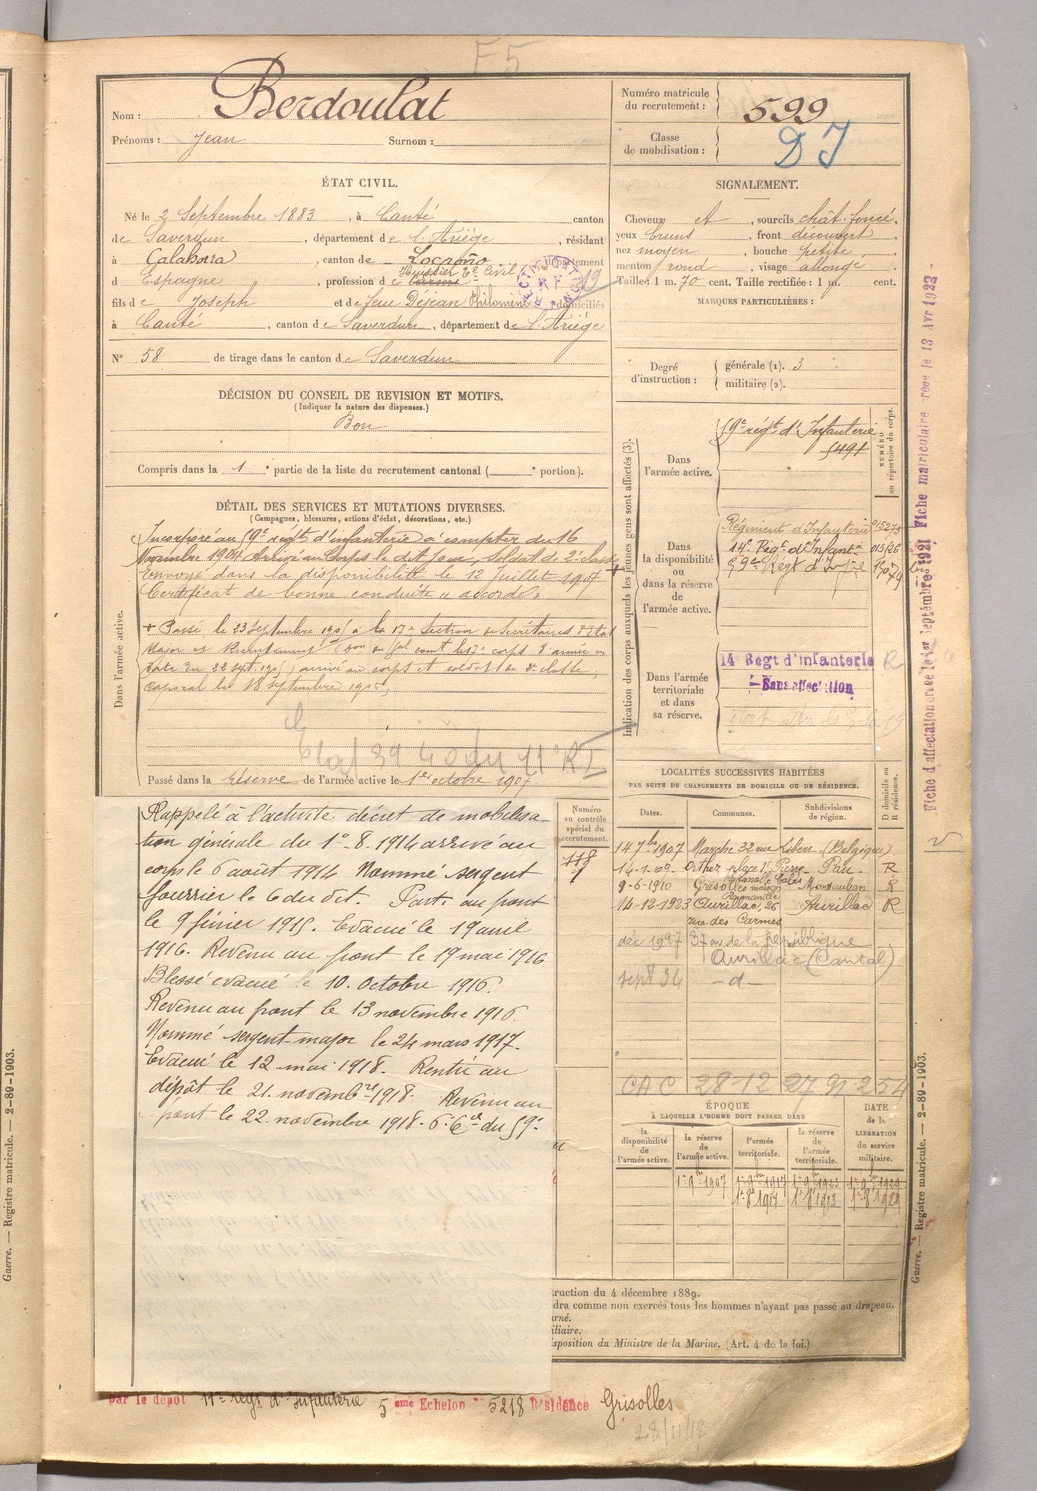 F5
Nom : Berdoulat
Prénoms : Jean Surnom :
Numéro matricule du recrutement : 599
Classe de mobilisation : DJ
ÉTAT CIVIL.
Né le 2 Septembre 1883, à Canté canton
de Saverdun, département de l'Ariège, résidant
à Calahorra, canton de Locroño département
d Espagne, profession de Huissier Tal Civil
fils de Joseph et de feue Dejean Philomène domiciliés
à Canté, canton de Saverdun, département de l'Ariège
N° 58 de tirage dans le canton de Saverdun
RECTIFICATION RF
19
DÉCISION DU CONSEIL DE REVISION ET MOTIFS.
(Indiquer la nature des dispenses.)
Bon
Compris dans la 1e partie de la liste du recrutement cantonal ( e portion).
SIGNALEMENT.
Cheveux et, sourcils chât. foncé,
yeux bruns, front découvert
nez moyen, bouche petite,
menton rond, visage allongé
Taille : 1 m. 70 cent. Taille rectifiée : 1 m. cent.
MARQUES PARTICULIÈRES :
Degré d'instruction : générale (1). 3
militaire (2).
DÉTAIL DES SERVICES ET MUTATIONS DIVERSES.
(Campagnes, blessures, actions d'éclat, décorations, etc.)
Dans l'armée active.
Incorporé au 59e régt d'infanterie à compter du 16
Novembre 1904 Arrivé au Corps le dit jour, soldat de 2e classe +
Envoyé dans la disponibilité le 12 juillet 1907
Certificat de bonne conduite "accordé"
+ Passé le 23 Septembre 1905 à la 17e Section de Secrétaires d'état
Major et Recrutement
date du 22 sept. 1905) arrivé au corps et soldat de 2e classe,
caporal le 18 septembre 1906.
Passé dans la réserve de l'armée active le 1er octobre 1907
Indication des corps auxquels les jeunes gens sont affectés (3).
NUMÉRO au répertoire du corps.
Dans l'armée active.
59e régt d'Infanterie
5491
Dans la disponibilité ou dans la réserve de l'armée active.
Régiment d'Infanterie 015275
14e Régt d'Infantie 013526
59e Régt d'Inf
Dans l'armée territoriale et dans sa réserve.
14e Régt d'Infanterie R
Sans affectation
Fiche d'affectation créée le 1er Septembre 1921 Fiche matriculaire créée le 13 Avr 1922
Rappelé à l'activité décret de mobilisa-
tion générale du 1er-8. 1914 arrivé au
corps le 6 août 1914 Nommé sergent
fourrier le 6 du dit. Parti au front
le 9 février 1915. Evacué le 19 avril
1916. Revenu au front le 19 mai 1916
Blessé évacué le 10. Octobre 1916.
Revenu au front le 13 novembre 1916.
Nommé sergent-major le 24 mars 1917.
Evacué le 12 mai 1918. Rentré au
dépôt le 21. novembre 1918. Revenu au
front le 22. novembre 1918. 6e Cie du 59e
Numéro au contrôle spécial du recrutement.
118
LOCALITÉS SUCCESSIVES HABITÉES
PAR SUITE DE CHANGEMENTS DE DOMICILE OU DE RÉSIDENCE.
Dates. Communes. Subdivisions de région. D domicile ou R résidence.
14 7bre 1907 Marche 32 rue Libert (Belgique)
14-1-09. Orthez place St Pierre Pau. R
9-6-1910 Grisolles maison Montauban R
14-12-1923 Aurillac, 26 Aurillac R
rue des Carmes
déc 1927 37 av de la République
Aurillac (Cantal)
sept 36 -d-
CAC 28-12
ÉPOQUE
À LAQUELLE L'HOMME DOIT PASSER DANS
la disponibilité de l'armée active. la réserve de l'armée active. l'armée territoriale. la réserve de l'armée territoriale. DATE de la LIBÉRATION du service militaire.
1er 8bre 1907
ruction du 4 décembre 1889.
dra comme non exercés tous les hommes n'ayant pas passé au drapeau.
urné.
iliaire.
isposition du Ministre de la Marine. (Art. 4 de la loi.)
par le dépôt 11e Régt d'Infanterie 5ème Echelon n° 5218 Résidence Grisolles
28/11/18
Guerre. — Registre matricule. — 2-89-1903.
Guerre. — Registre matricule. — 2-89-1903.